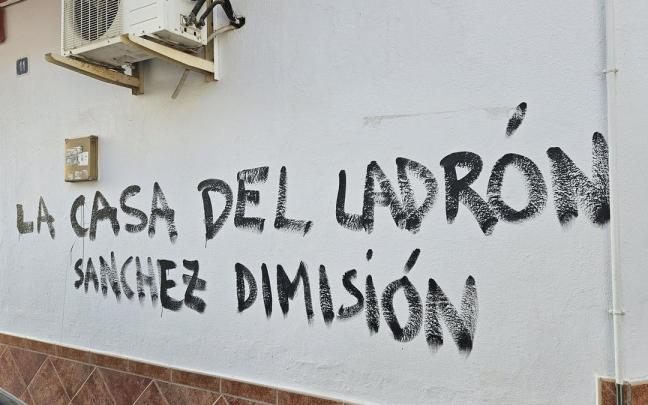 11
LA CASA DEL LADRÓN
SANCHEZ DIMISIÓN